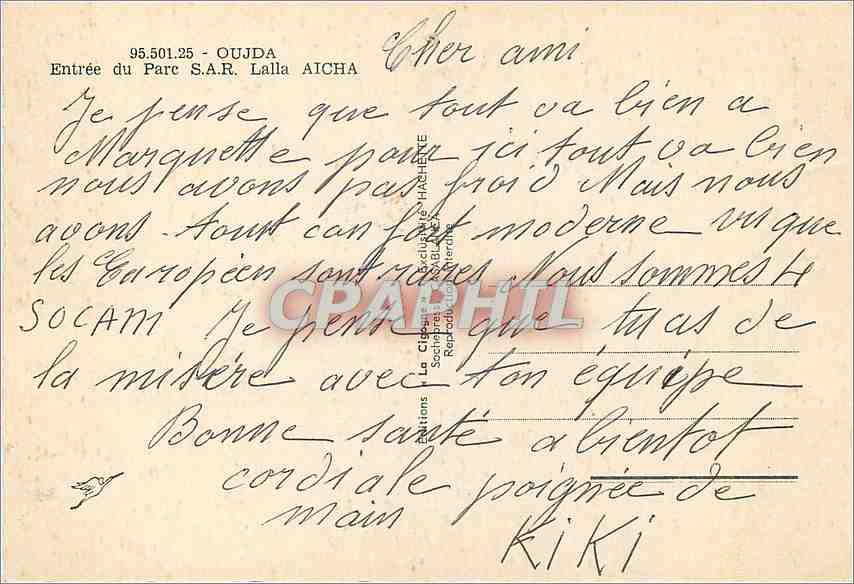 95.501.25 - OUJDA
Entrée du Parc S.A.R. Lalla AICHA
Cher ami
Je pense que tout va bien a
Marquette pour ici tout va bien
nous avons pas froid Mais nous
avons tout confort moderne vu que
les Européen sont rares Nous sommes 4
SOCAM Je pense que tu as de
la misère avec ton équipe
Bonne santé a bientot
cordiale poignée de
main
KiKi
Editions « La Cigogne » - Exclusivité HACHETTE
Sochepress - CASABLANCA
Reproduction interdite
CPAPHIL